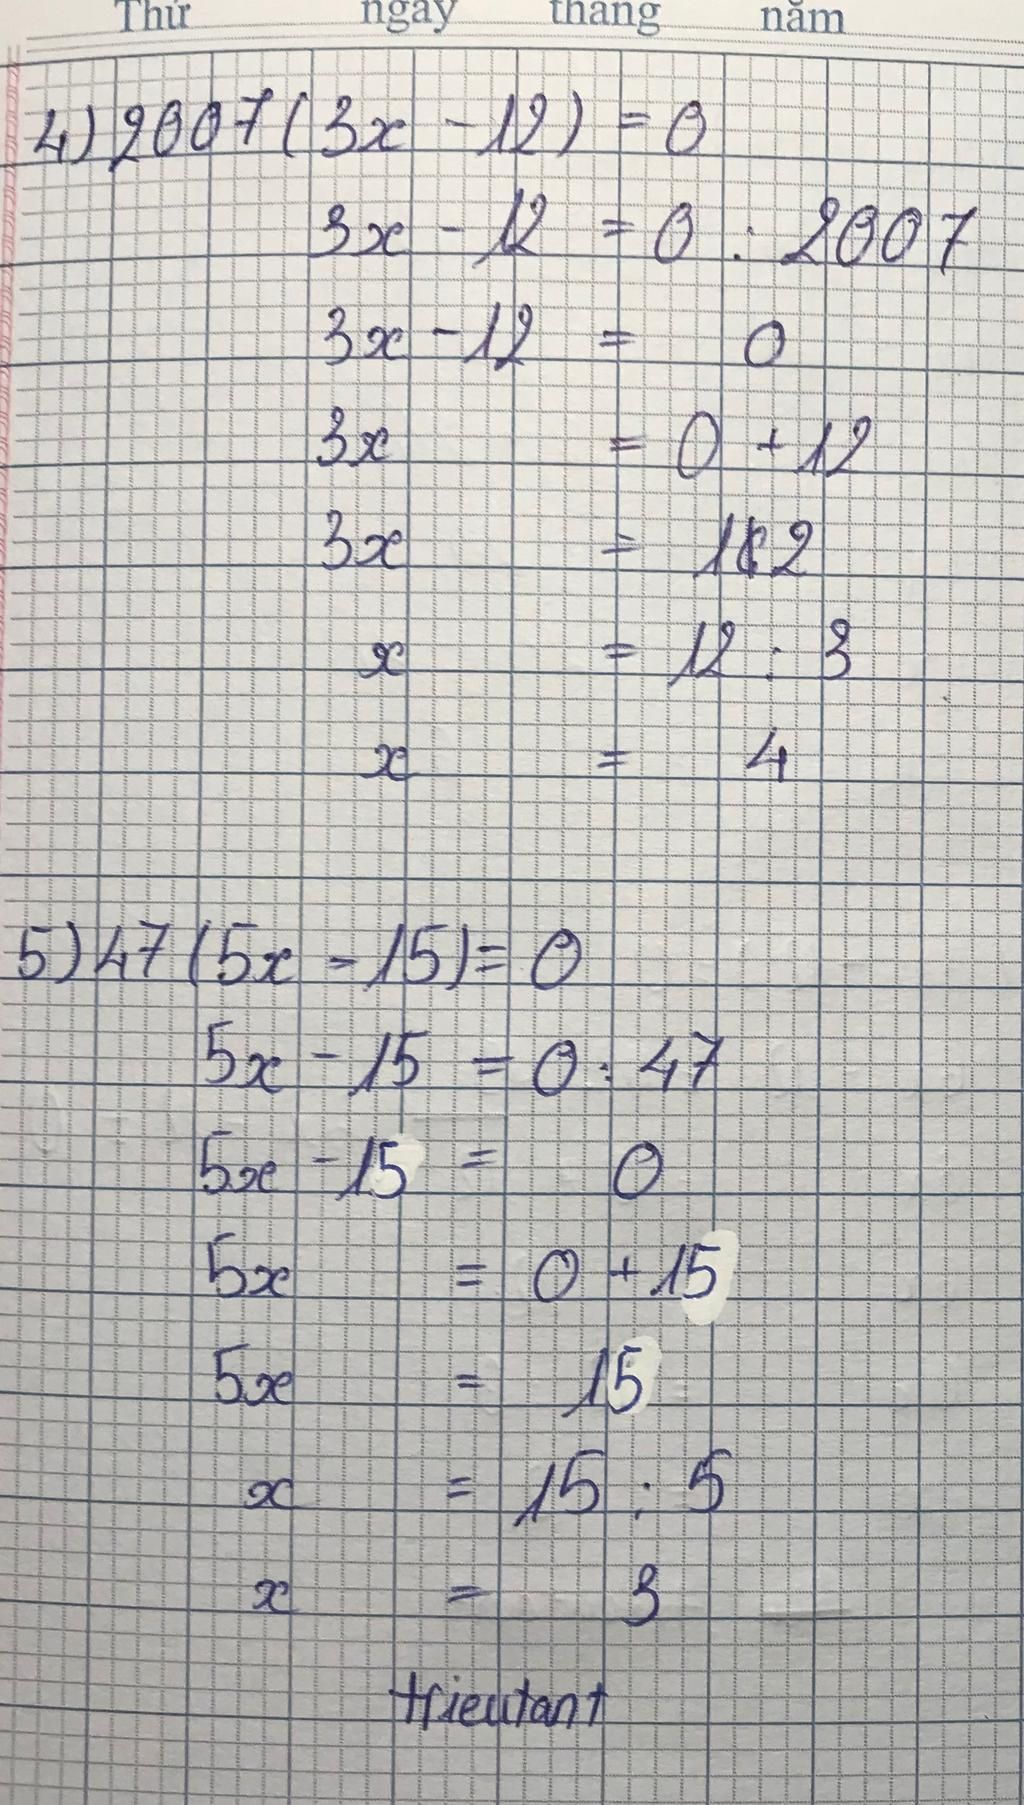 Thứ ngày tháng năm
4) 2007 (3x - 12) = 0
3x - 12 = 0 : 2007
3x - 12 = 0
3x = 0 + 12
3x = 12
x = 12 : 3
x = 4
5) 47 (5x - 15) = 0
5x - 15 = 0 : 47
5x - 15 = 0
5x = 0 + 15
5x = 15
x = 15 : 5
x = 3
trieutant